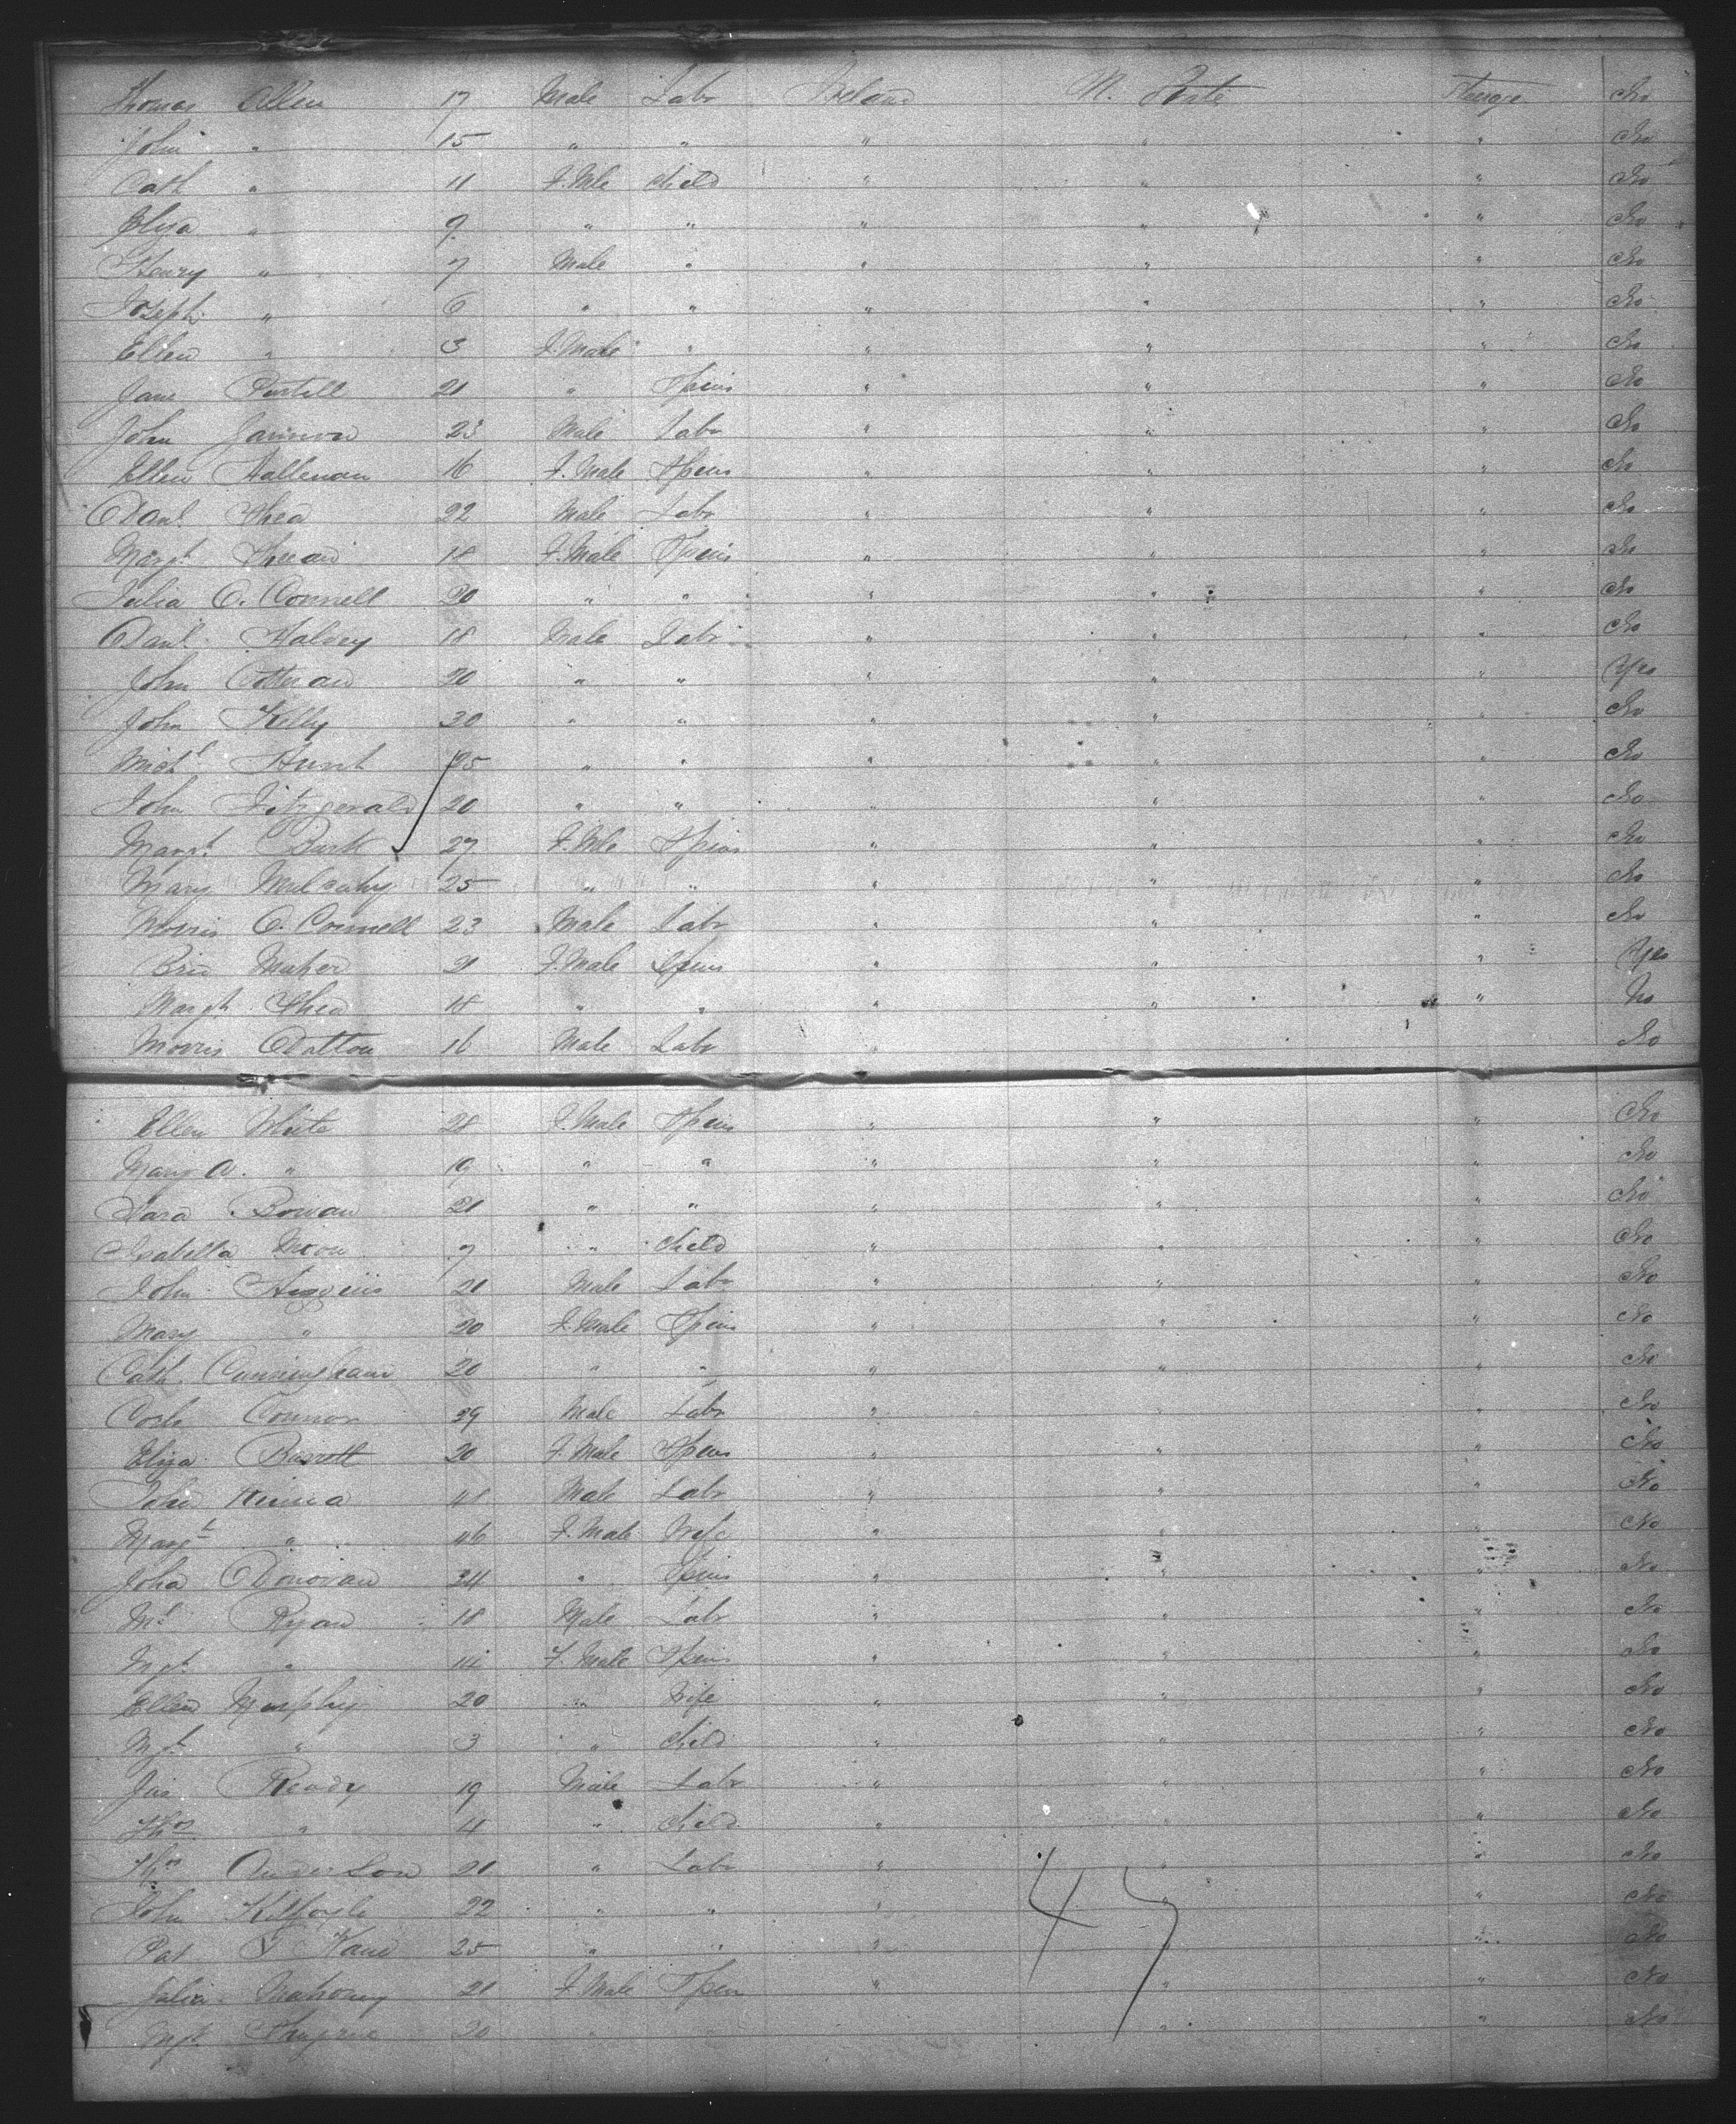 Thomas Allen 17 Male Labr Ireland U. States Steerage No
John " 15 " " " " " No
Cath " 11 F.Mle Child " " " No
Eliza " 9 " " " " " No
Henry " 7 Male " " " " No
Joseph " 6 " " " " " No
Ellen " 3 F.Male " " " " No
Jane 21 " Spins " " " No
John 23 Male Labr " " " No
Ellen Hallenan 16 F. Male Spins " " " No
Danl Shea 22 Male Labr " " " No
Margt 18 F.Male Spins " " " No
Julia O. Connell 20 " " " " " No
Danl Halvey 18 Male Labr " " " No
John 20 " " " " " Yes
John Kelly 30 " " " " " No
Michl Hunt 25 " " " " " No
John Fitzgerald 20 " " " " " No
Margt Burk 27 F.Mle Spins " " " No
Mary Mulcahy 25 " " " " " No
Morris O. Connell 23 Male Labr " " " No
Brid Maher 21 F.Male Spins " " " Yes
Margt Shea 18 " " " " " No
Morris Dalton 16 Male Labr No
Ellen White 28 F.Male Spins " " " No
Mary A. " 19 " " " " " No
Sara Bowan 21 " " " " " No
Isabella 7 " Child " " " No
John Higgins 21 Male Labr " " " No
Mary " 20 F.Male Spins " " " No
Cath. Cunningham 20 " " " " " No
Connor 39 Male Labr " " " No
Eliza Barrott 20 F. Male Spins " " " No
John 41 Male Labr " " " No
Margt " 46 F. Male Wife " " " No
Joha Donovan 34 " Spins " " " No
Ml Ryan 18 Male Labr " " " No
Mgt " F. Male Spins " " " No
Ellen Murphy 20 " Wife " " " No
Mgt " 3 " Child " " " No
Jas Ready 19 Male Labr " " " No
Thos " 4 " Child " " " No
Thos Anderson 21 " Labr " " " No
John Kilfoyle 22 " " " " " No
Pat Kane 25 " " " " " No
47
Julia Mahony 21 F Male Spins " " " No
Mgt 20 " " " " " No